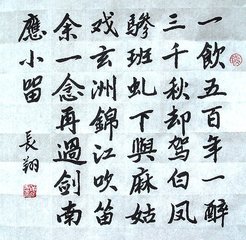 一飲五百年一醉
三千秋却駕白鳳
驂班虬下與麻姑
戏玄洲錦江吹笛
余一念再過劍南
應小留
長翔